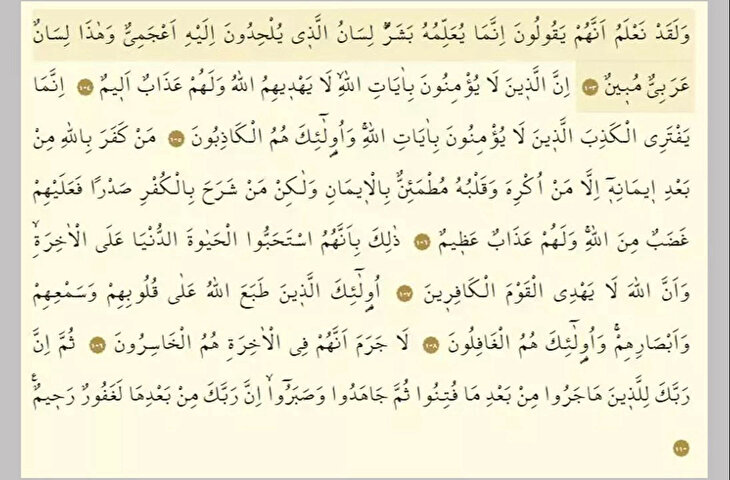 وَلَقَدْ نَعْلَمُ اَنَّهُمْ يَقُولُونَ اِنَّمَا يُعَلِّمُهُ بَشَرٌۜ لِسَانُ الَّذ۪ي يُلْحِدُونَ اِلَيْهِ اَعْجَمِيٌّ وَهٰذَا لِسَانٌ
عَرَبِيٌّ مُب۪ينٌ ﴿١٠٣﴾ اِنَّ الَّذ۪ينَ لَا يُؤْمِنُونَ بِاٰيَاتِ اللّٰهِۙ لَا يَهْد۪يهِمُ اللّٰهُ وَلَهُمْ عَذَابٌ اَل۪يمٌ ﴿١٠٤﴾ اِنَّمَا
يَفْتَرِي الْكَذِبَ الَّذ۪ينَ لَا يُؤْمِنُونَ بِاٰيَاتِ اللّٰهِۚ وَاُو۬لٰٓئِكَ هُمُ الْكَاذِبُونَ ﴿١٠٥﴾ مَنْ كَفَرَ بِاللّٰهِ مِنْ
بَعْدِ ا۪يمَانِه۪ٓ اِلَّا مَنْ اُكْرِهَ وَقَلْبُهُ مُطْمَئِنٌّ بِالْا۪يمَانِ وَلٰكِنْ مَنْ شَرَحَ بِالْكُفْرِ صَدْرًا فَعَلَيْهِمْ
غَضَبٌ مِنَ اللّٰهِۚ وَلَهُمْ عَذَابٌ عَظ۪يمٌ ﴿١٠٦﴾ ذٰلِكَ بِاَنَّهُمُ اسْتَحَبُّوا الْحَيٰوةَ الدُّنْيَا عَلَى الْاٰخِرَةِۙ
وَاَنَّ اللّٰهَ لَا يَهْدِي الْقَوْمَ الْكَافِر۪ينَ ﴿١٠٧﴾ اُو۬لٰٓئِكَ الَّذ۪ينَ طَبَعَ اللّٰهُ عَلٰى قُلُوبِهِمْ وَسَمْعِهِمْ
وَاَبْصَارِهِمْۚ وَاُو۬لٰٓئِكَ هُمُ الْغَافِلُونَ ﴿١٠٨﴾ لَا جَرَمَ اَنَّهُمْ فِي الْاٰخِرَةِ هُمُ الْخَاسِرُونَ ﴿١٠٩﴾ ثُمَّ اِنَّ
رَبَّكَ لِلَّذ۪ينَ هَاجَرُوا مِنْ بَعْدِ مَا فُتِنُوا ثُمَّ جَاهَدُوا وَصَبَرُٓواۙ اِنَّ رَبَّكَ مِنْ بَعْدِهَا لَغَفُورٌ رَح۪يمٌ۟
﴿١١٠﴾